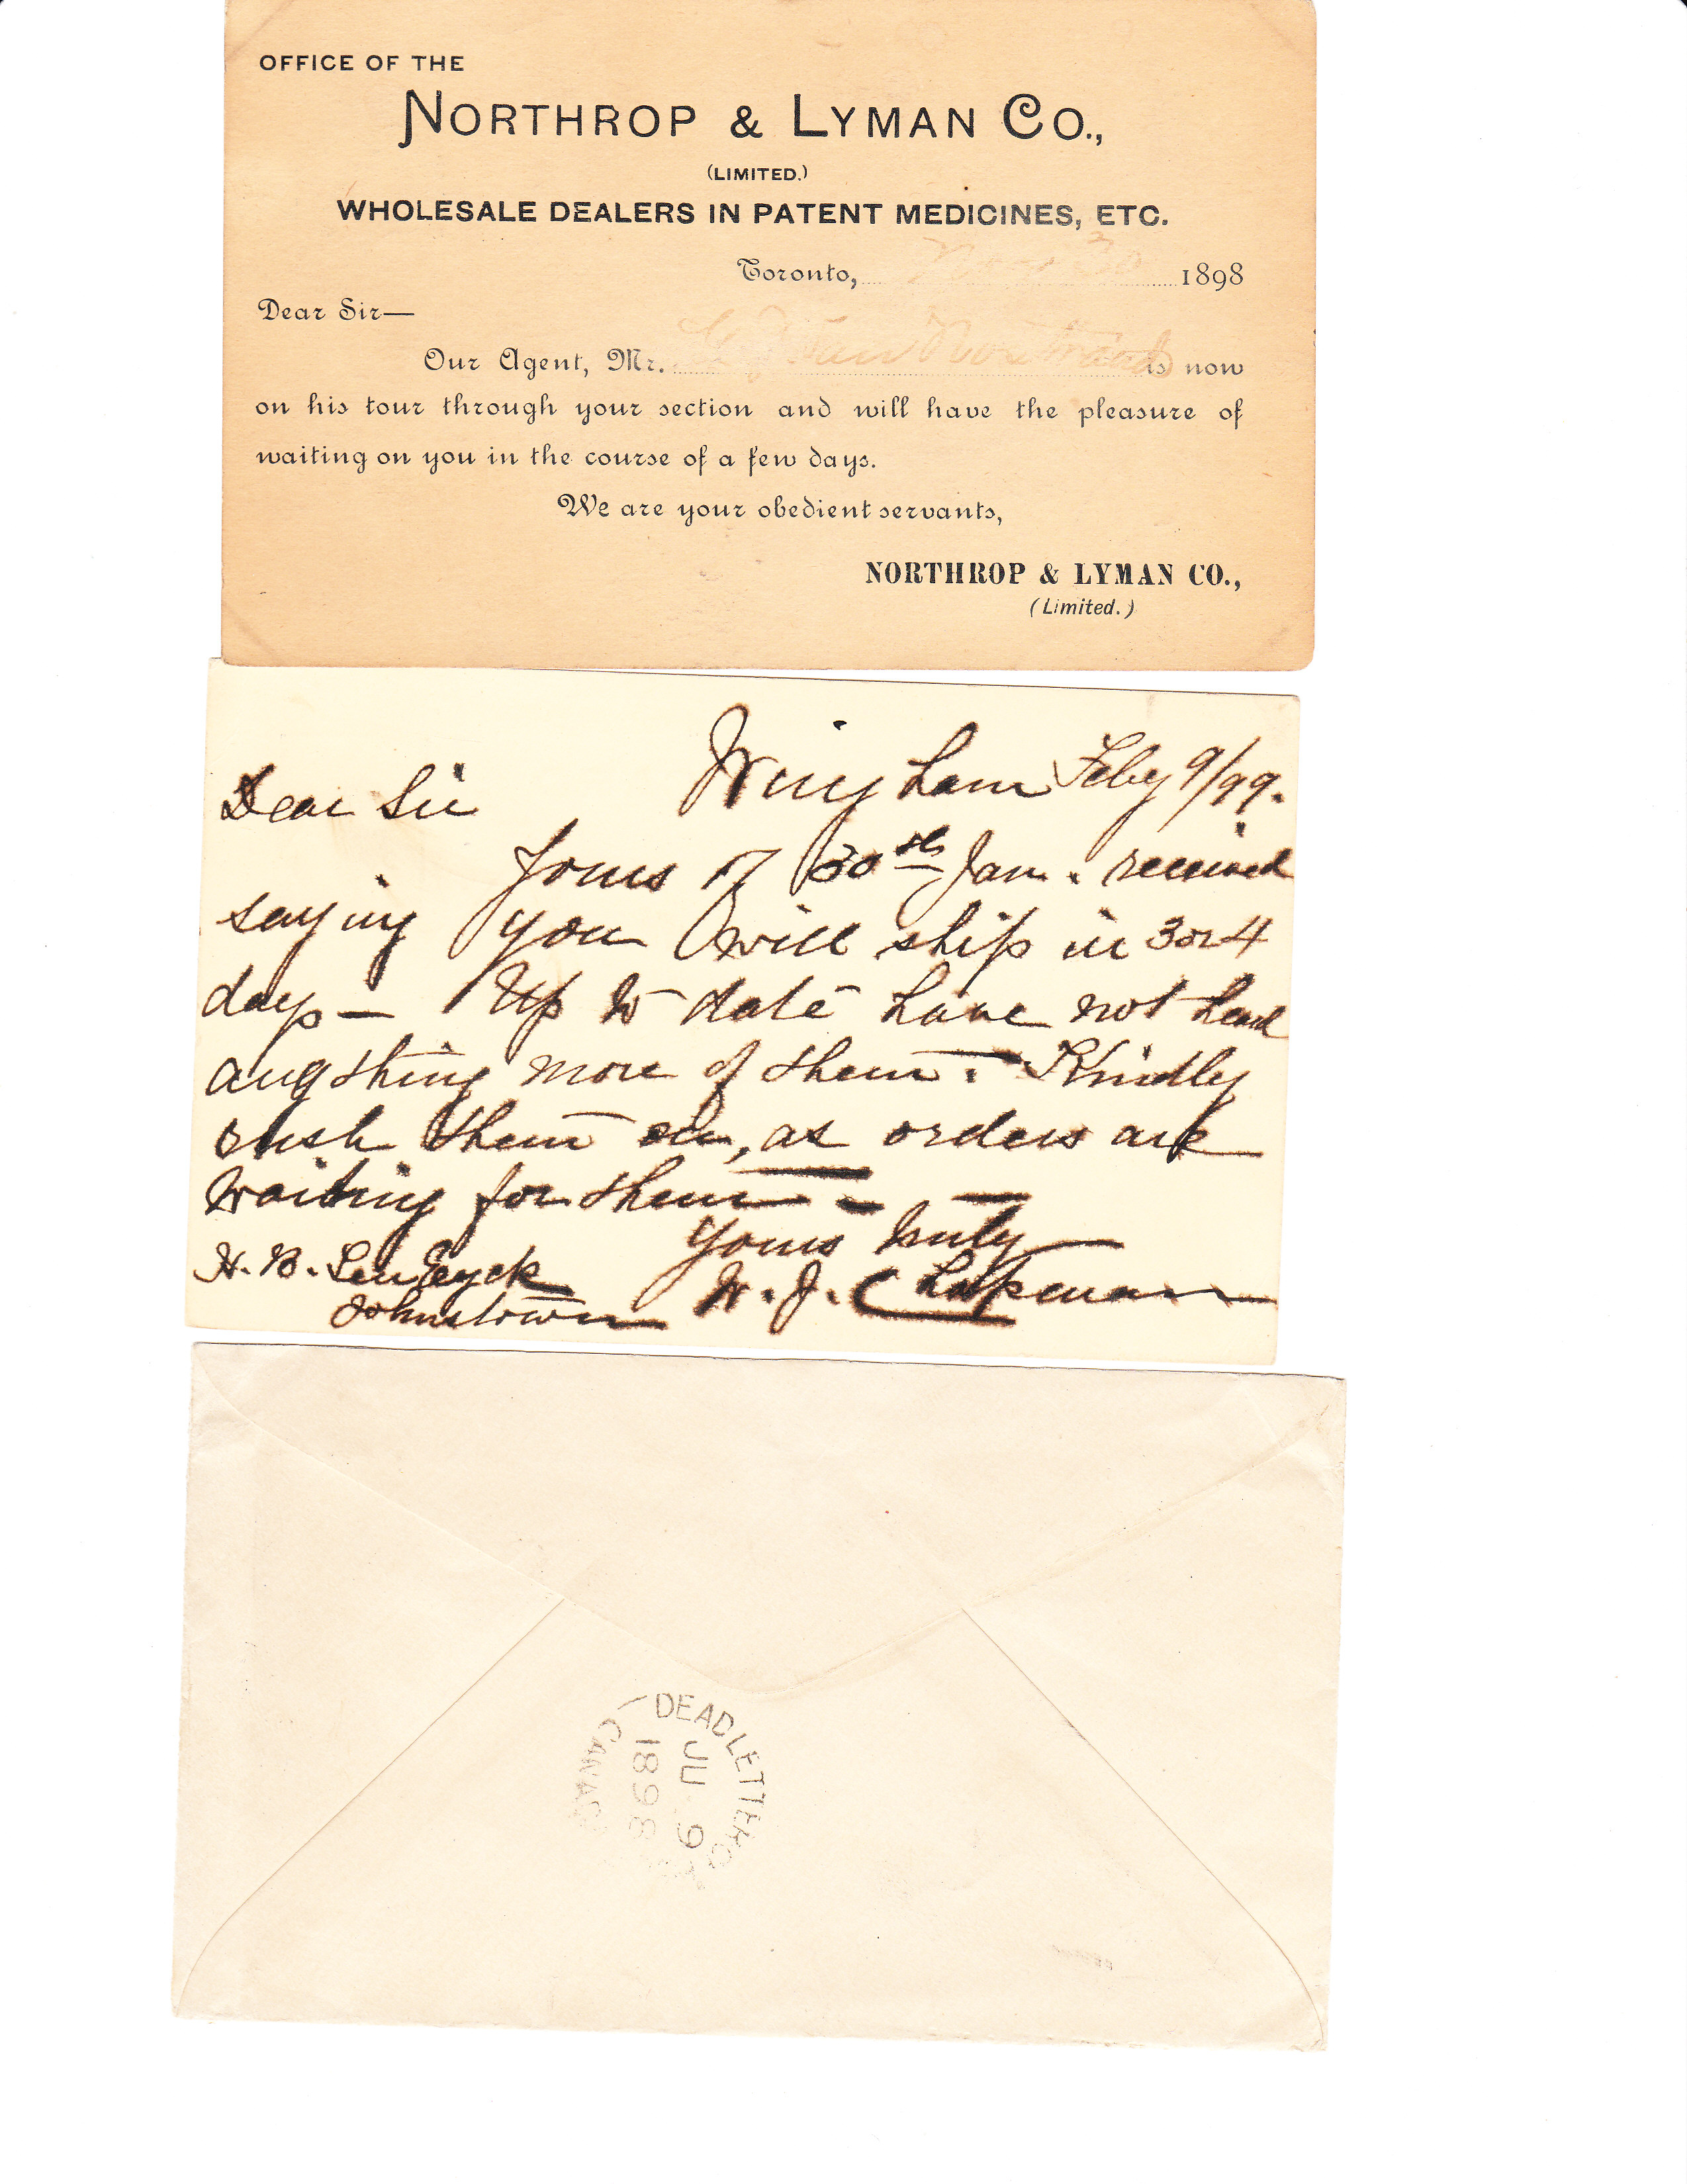 OFFICE OF THE
NORTHROP & LYMAN CO.,
(LIMITED.)
WHOLESALE DEALERS IN PATENT MEDICINES, ETC.
Toronto, Nov 30 1898
Dear Sir—
Our Agent, Mr. is now
on his tour through your section and will have the pleasure of
waiting on you in the course of a few days.
We are your obedient servants,
NORTHROP & LYMAN CO.,
(Limited.)
Wingham Feby 9/99.
Dear Sir
Yours of 30th Jan. received
saying you will ship in 3 or 4
days — Up to date have not heard
anything more of them. Kindly
rush them on, as orders are
waiting for them —
Yours truly
H. B. Ten Eyck
W. J. Chapman
Johnstown
DEAD LETTER O
JU 9
1898
CANADA